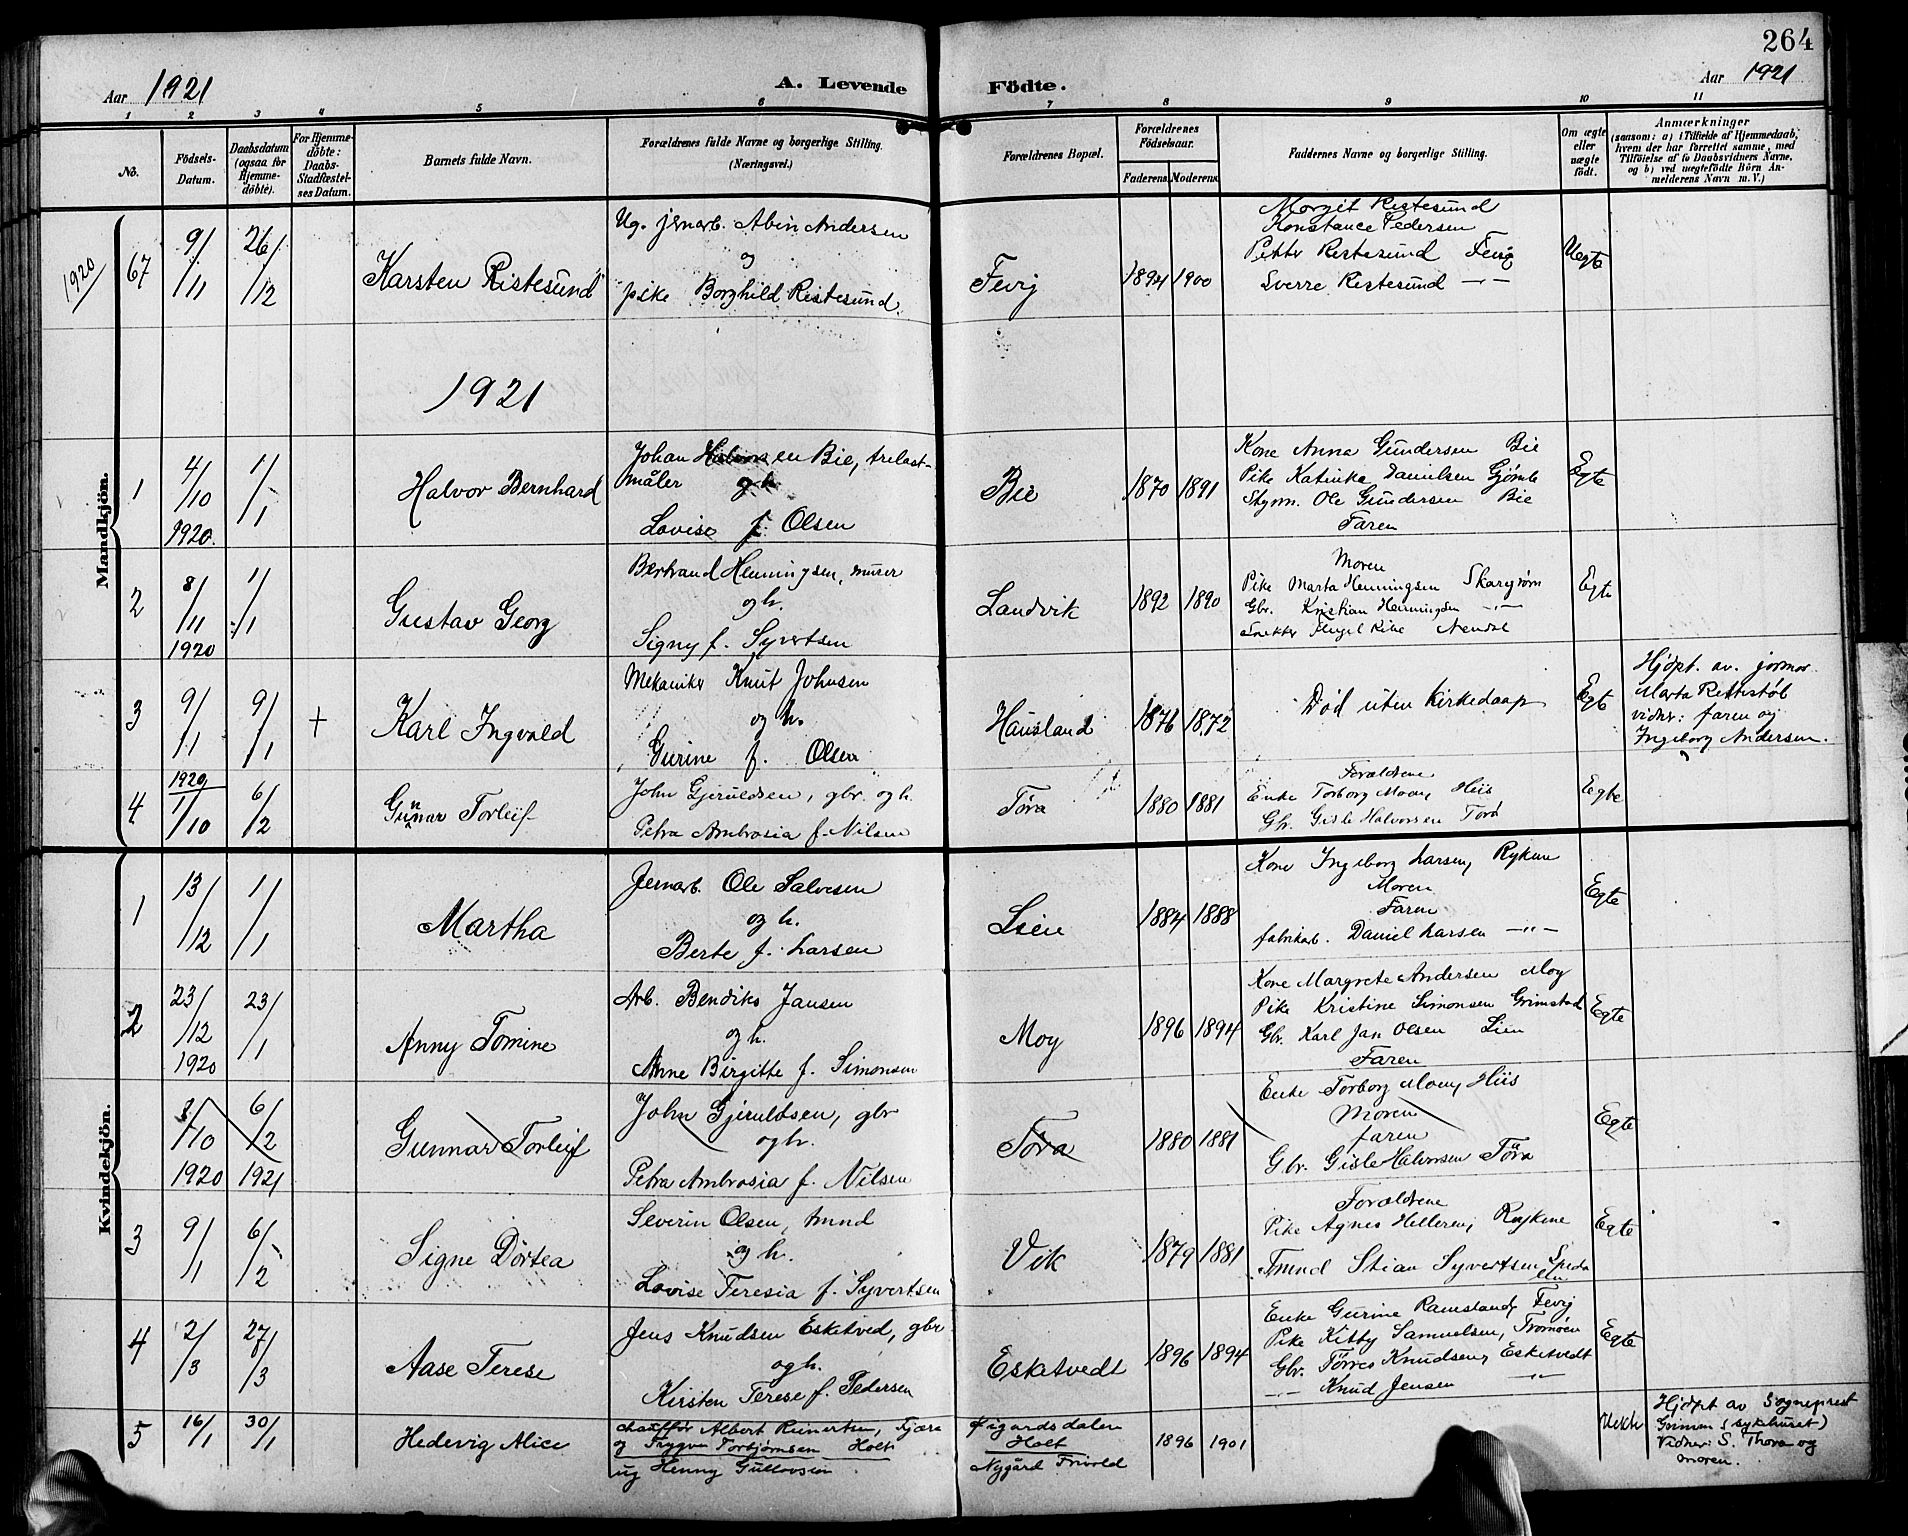 264
Aar 1921
A. Levende Födte.
Aar 1921
1 2 3 4 5 6 7 8 9 10 11
No.
Födsels-Datum.
Daabsdatum (ogsaa for Hjemmedöbte).
For Hjemmedöbte: Daabs-Stadfæstelses Datum.
Barnets fulde Navn.
Forældrenes fulde Navne og borgerlige Stilling. (Næringsvei.)
Forældrenes Bopæl.
Forældrenes Födselsaar.
Faderens. Moderens.
Faddernes Navne og borgerlige Stilling.
Om ægte eller uægte födt.
Anmærkninger
(saasom: a) i Tilfælde af Hjemmedaab, hvem der har forrettet samme, med Tilföielse af to Daabsvidners Navne, og b) ved uægtefödte Börn Anmelderens Navn m. V.)
Mandkjön.
1920
67
9/11
26/12
Karsten Ristesund
Ug. jernarb. Abin Andersen
og
pike Borghild Ristesund
Fevig
1894 1900
Margit Ristesund
Konstance Pedersen
Petter Ristesund Fevig
Sverre Ristesund —"—
Uegte
1921
1
4/10 1920.
1/1
Halvor Bernhard
Johan Halvorsen Bie, trelast-
måler og h.
Lovise f. Olsen
Bie
1870 1891
Kone Anna Gundersen Bie
Pike Katinka Danielsen Gjömle
Styrm. Ole Gundersen Bie
Faren
Egte
2
8/11 1920
1/1
Gustav Georg
Bertrand Henningsen, murer
og h.
Signy f. Syvertsen
Landvik
1892 1890
Moren
Pike Marta Henningsen
Gbr. Kristian Henningsen —"—
Egte
3
9/1
9/1
+
Karl Ingvald
Mekaniker Knut Johnsen
og h.
Gurine f. Olsen
Hausland
1876 1872
Död uten kirkedaap
Egte
Hjdpt. av. jormor
Marta
vidner: faren og
Ingeborg Andersen.
4
1920
1/10
6/2
Gunnar Torleif
John Gjeruldsen, gbr. og h.
Petra Ambrosia f. Nilsen
Töra
1880 1881
Forældrene
Enke Torborg Moen, Hiis
Gbr. Gisle Halvorsen Törå
Egte
Kvindekjön.
1
13/12
1/1
Martha
Jernarb. Ole Salvesen
og h.
Berte f. Larsen
Lien
1884 1888
Kone Ingeborg Larsen, Rykene
Moren
Faren
fabrikarb. Daniel Larsen —"—
Egte
2
23/12 1920
23/1
Anny Tomine
Arb. Bendiks Jansen
og h.
Anne Birgitte f. Simonsen
Moy
1896 1894
Kone Margrete Andersen Moy
Pike Kristine Simonsen Grimstad
Gbr. Karl Jan Olsen Lien
Faren
Egte
/10 1920
6/2 1921
Gunnar Torleif
John Gjeruldsen, gbr
og h.
Petra Ambrosia f. Nilsen
Töra
1880 1881
Enke Torborg Moen, Hiis
Moren
faren
Gbr. Gisle Halvorsen Töra
Egte
3
9/1
6/2
Signe Dörtea
Severin Olsen, tmnd
og h.
Lovise Teresia f. Syvertsen
Vik
1879 1881
Forældrene
Pike Agnes Helleren, Rykene
Tmnd Stian Syvertsen Spedalen
Egte
4
2/3
27/3
Aase Terese
Jens Knudsen Esketved, gbr
og h.
Kirsten Terese f. Pedersen
Esketvedt
1896 1894
Enke Gurine Ramsland, Fevig
Pike Kitty Samuelsen, Tromöen
Gbr. Törres Knudsen, Esketvedt
—"— Knud Jensen —"—
Egte
5
16/1
30/1
Hedevig Alice
chaufför Albert Reinertsen, Fjære
og Trygve Torbjörnsen Holt
ug Henny Gullovsen
Öigardsdalen
Holt
Nygård Frivold
1896 1901
Uekte
Hjdpt av Sogneprest
Grimm (sykhuset)
Vidner: S. Thora og
moren.